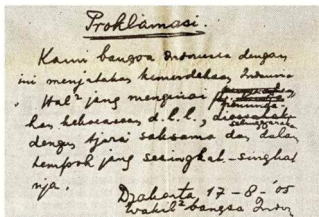 Proklamasi.
Kami bangsa Indonesia dengan
ini menjatakan kemerdekaan Indonesia.
Hal² jang mengenai
kekoeasaan d.l.l., diselenggarakan
dengan tjara saksama dan dalam
tempoh jang sesingkat-singkat
nja.
Djakarta, 17-8-'05
Wakil² bangsa Indon